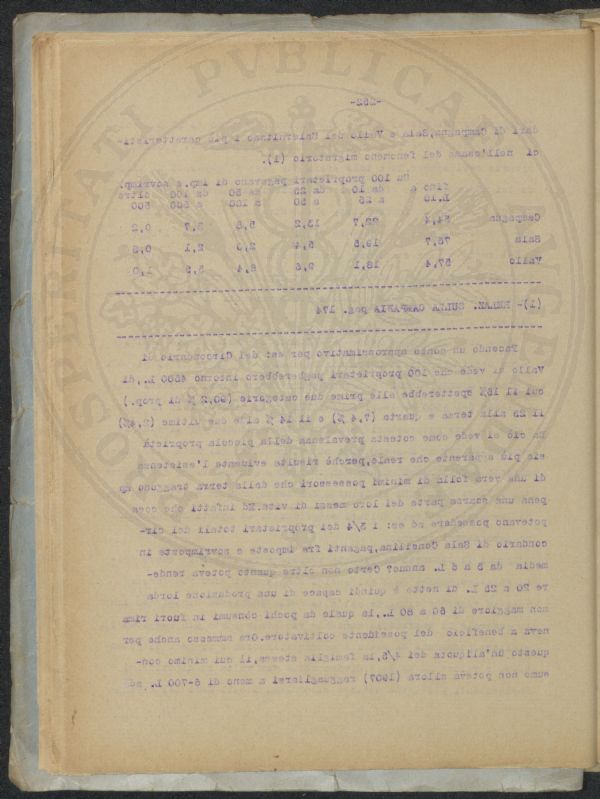 -252-
dari di Campagna,Sala e Vallo del Salernitano i più caratteristi-
ci nell'esame del fenomeno migratorio (1).
Su 100 proprietari pagavano di imp.e sovrimp.
fino a da 10 da 25 da 50 da 100 oltre
L.10 a 25 a 50 a 100 a 500 500
Campagna 54,4 22,7 13,2 5,8 3,7 0,2
Sala 75,7 19,5 5,4 2,0 2,1 0,3
Vallo 57,4 18,1 9,6 8,4 5,5 1,0
(1)- RELAZ. SULLA CAMPANIA pag. 174
Facendo un conto approssimativo per es: del Circondario di
Vallo si vede che 100 proprietari pagherebbero intorno 4500 L.,di
cui il 15% spetterebbe alle prime due categorie (90,2 % di prop.)
il 25 alla terza e quarta (7,4 %) e il 14 % alle due ultime (2,4%)
Da ciò si vede come cotesta prevalenza della piccola proprietà
sia più apparente che reale,perchè risulta evidente l'esistenza
di una vera folla di minimi possessori che dalla terra traggono ap
pena una scarsa parte dei loro mezzi di vita.Ed infatti che cosa
potevano possedere ad es: i 3/4 dei proprietari totali del cir-
condario di Sala Consilina,paganti fra imposte e sovrimposte in
media da 5 a 6 L. annue? Certo non oltre quanto poteva rende-
re 20 a 25 L. di netto e quindi capace di una produzione lorda
non maggiore di 60 a 80 L.,la quale da pochi consumi in fuori rima
neva a beneficio del possidente coltivatore.Ora ammesso anche per
questo un'aliquota dei 4/5,la famiglia stessa,il cui minimo con-
sumo non poteva allora (1907) ragguagliarsi a meno di 6-700 L. ad
PVBLICA